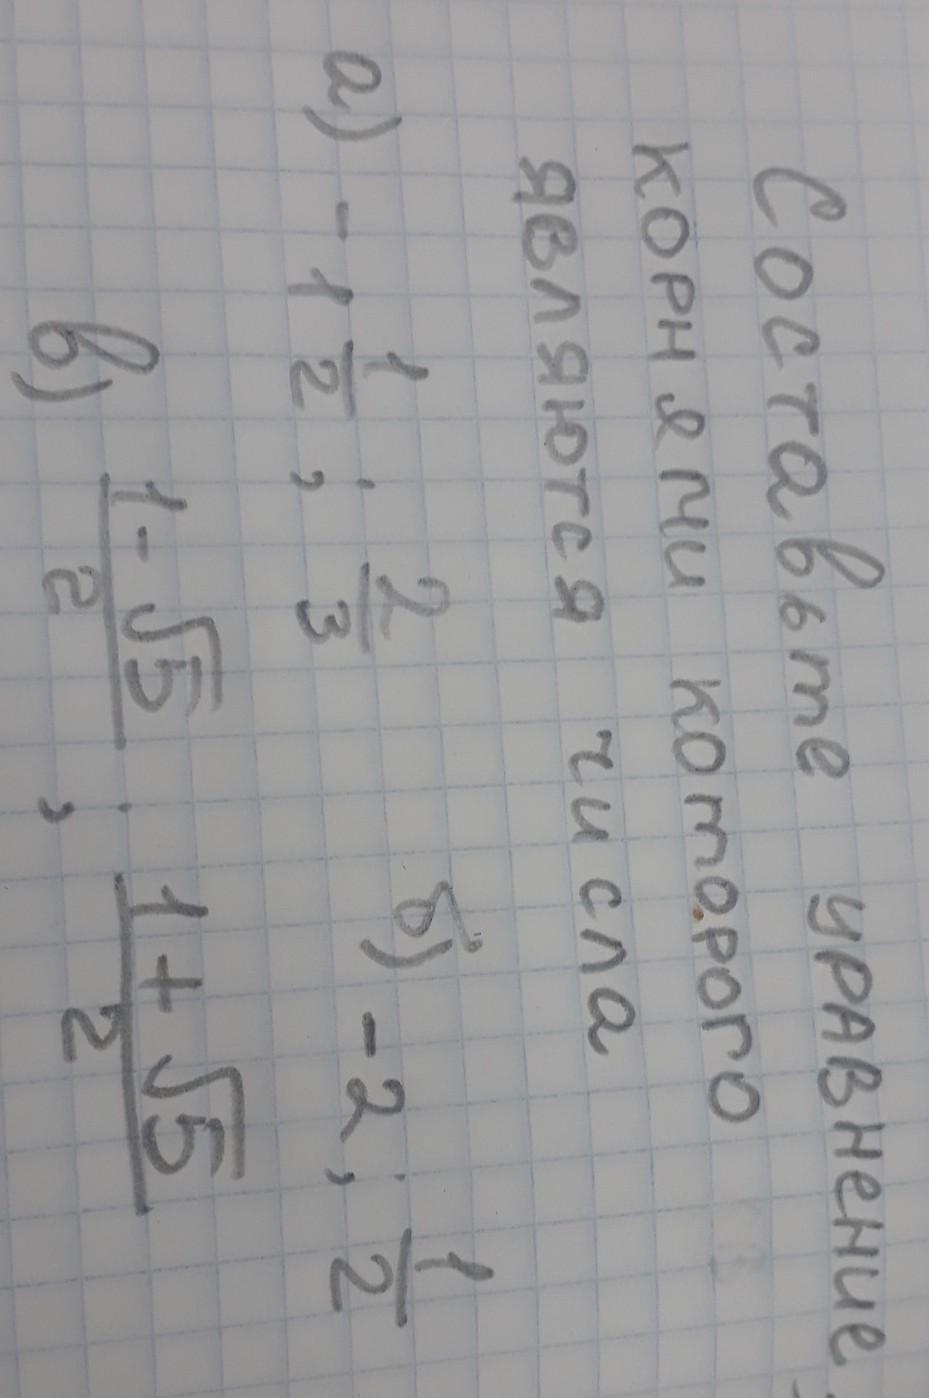 Составьте уравнение,
корнями которого
являются числа
а) -1 1/2; 2/3 б) -2; 1/2
в) (1-√5)/2; (1+√5)/2